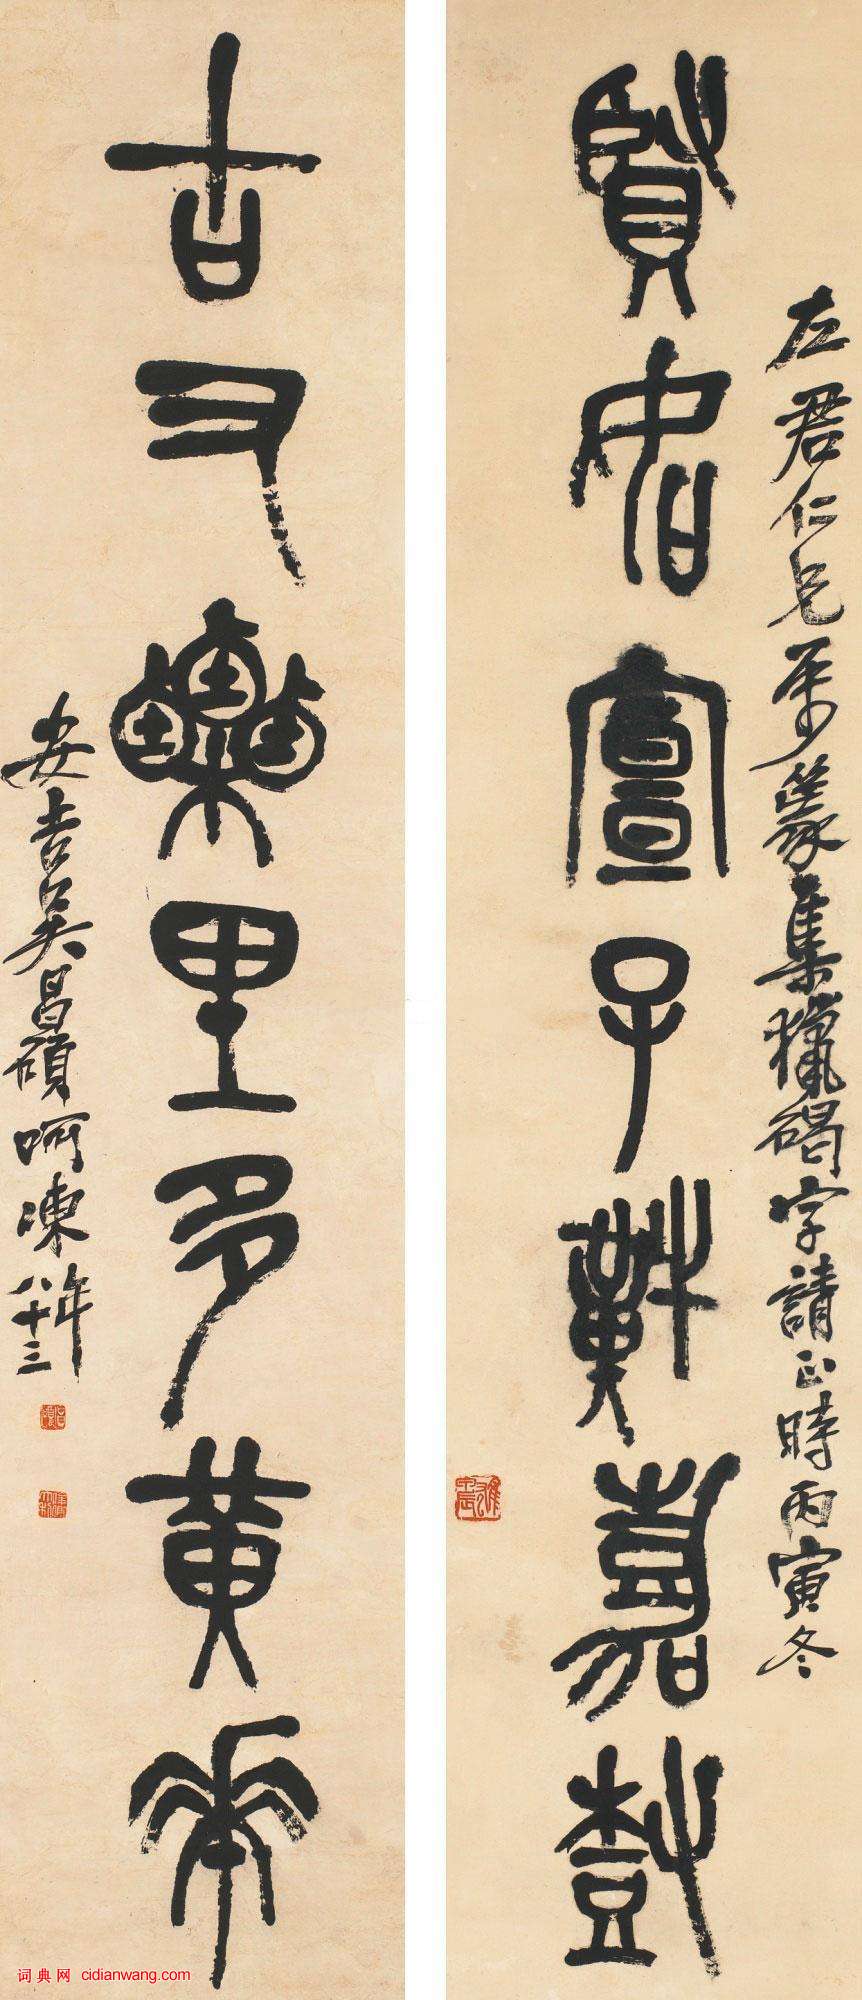 賢君宣子嘉尌
左君仁兄屬篆集獵碣字請正時丙寅冬
古又樂里多黃華
安吉吳昌碩呵凍年八十三
词典网 cidianwang.com